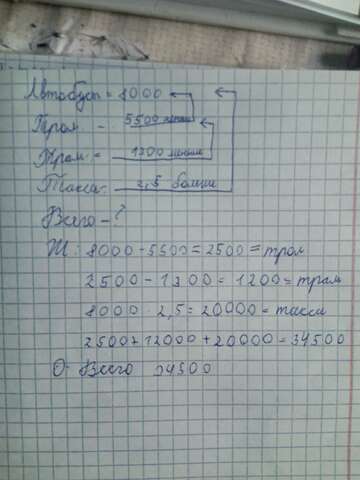 Автобус = 8000
Тром - 5500 меньше
Трам = 1300 меньше
Такси - 2,5 больше
Всего - ?
Ж: 8000 - 5500 = 2500 = тром
2500 - 1300 = 1200 = трам
8000 · 2,5 = 20000 = такси
2500 + 12000 + 20000 = 34500
О: Всего 34500